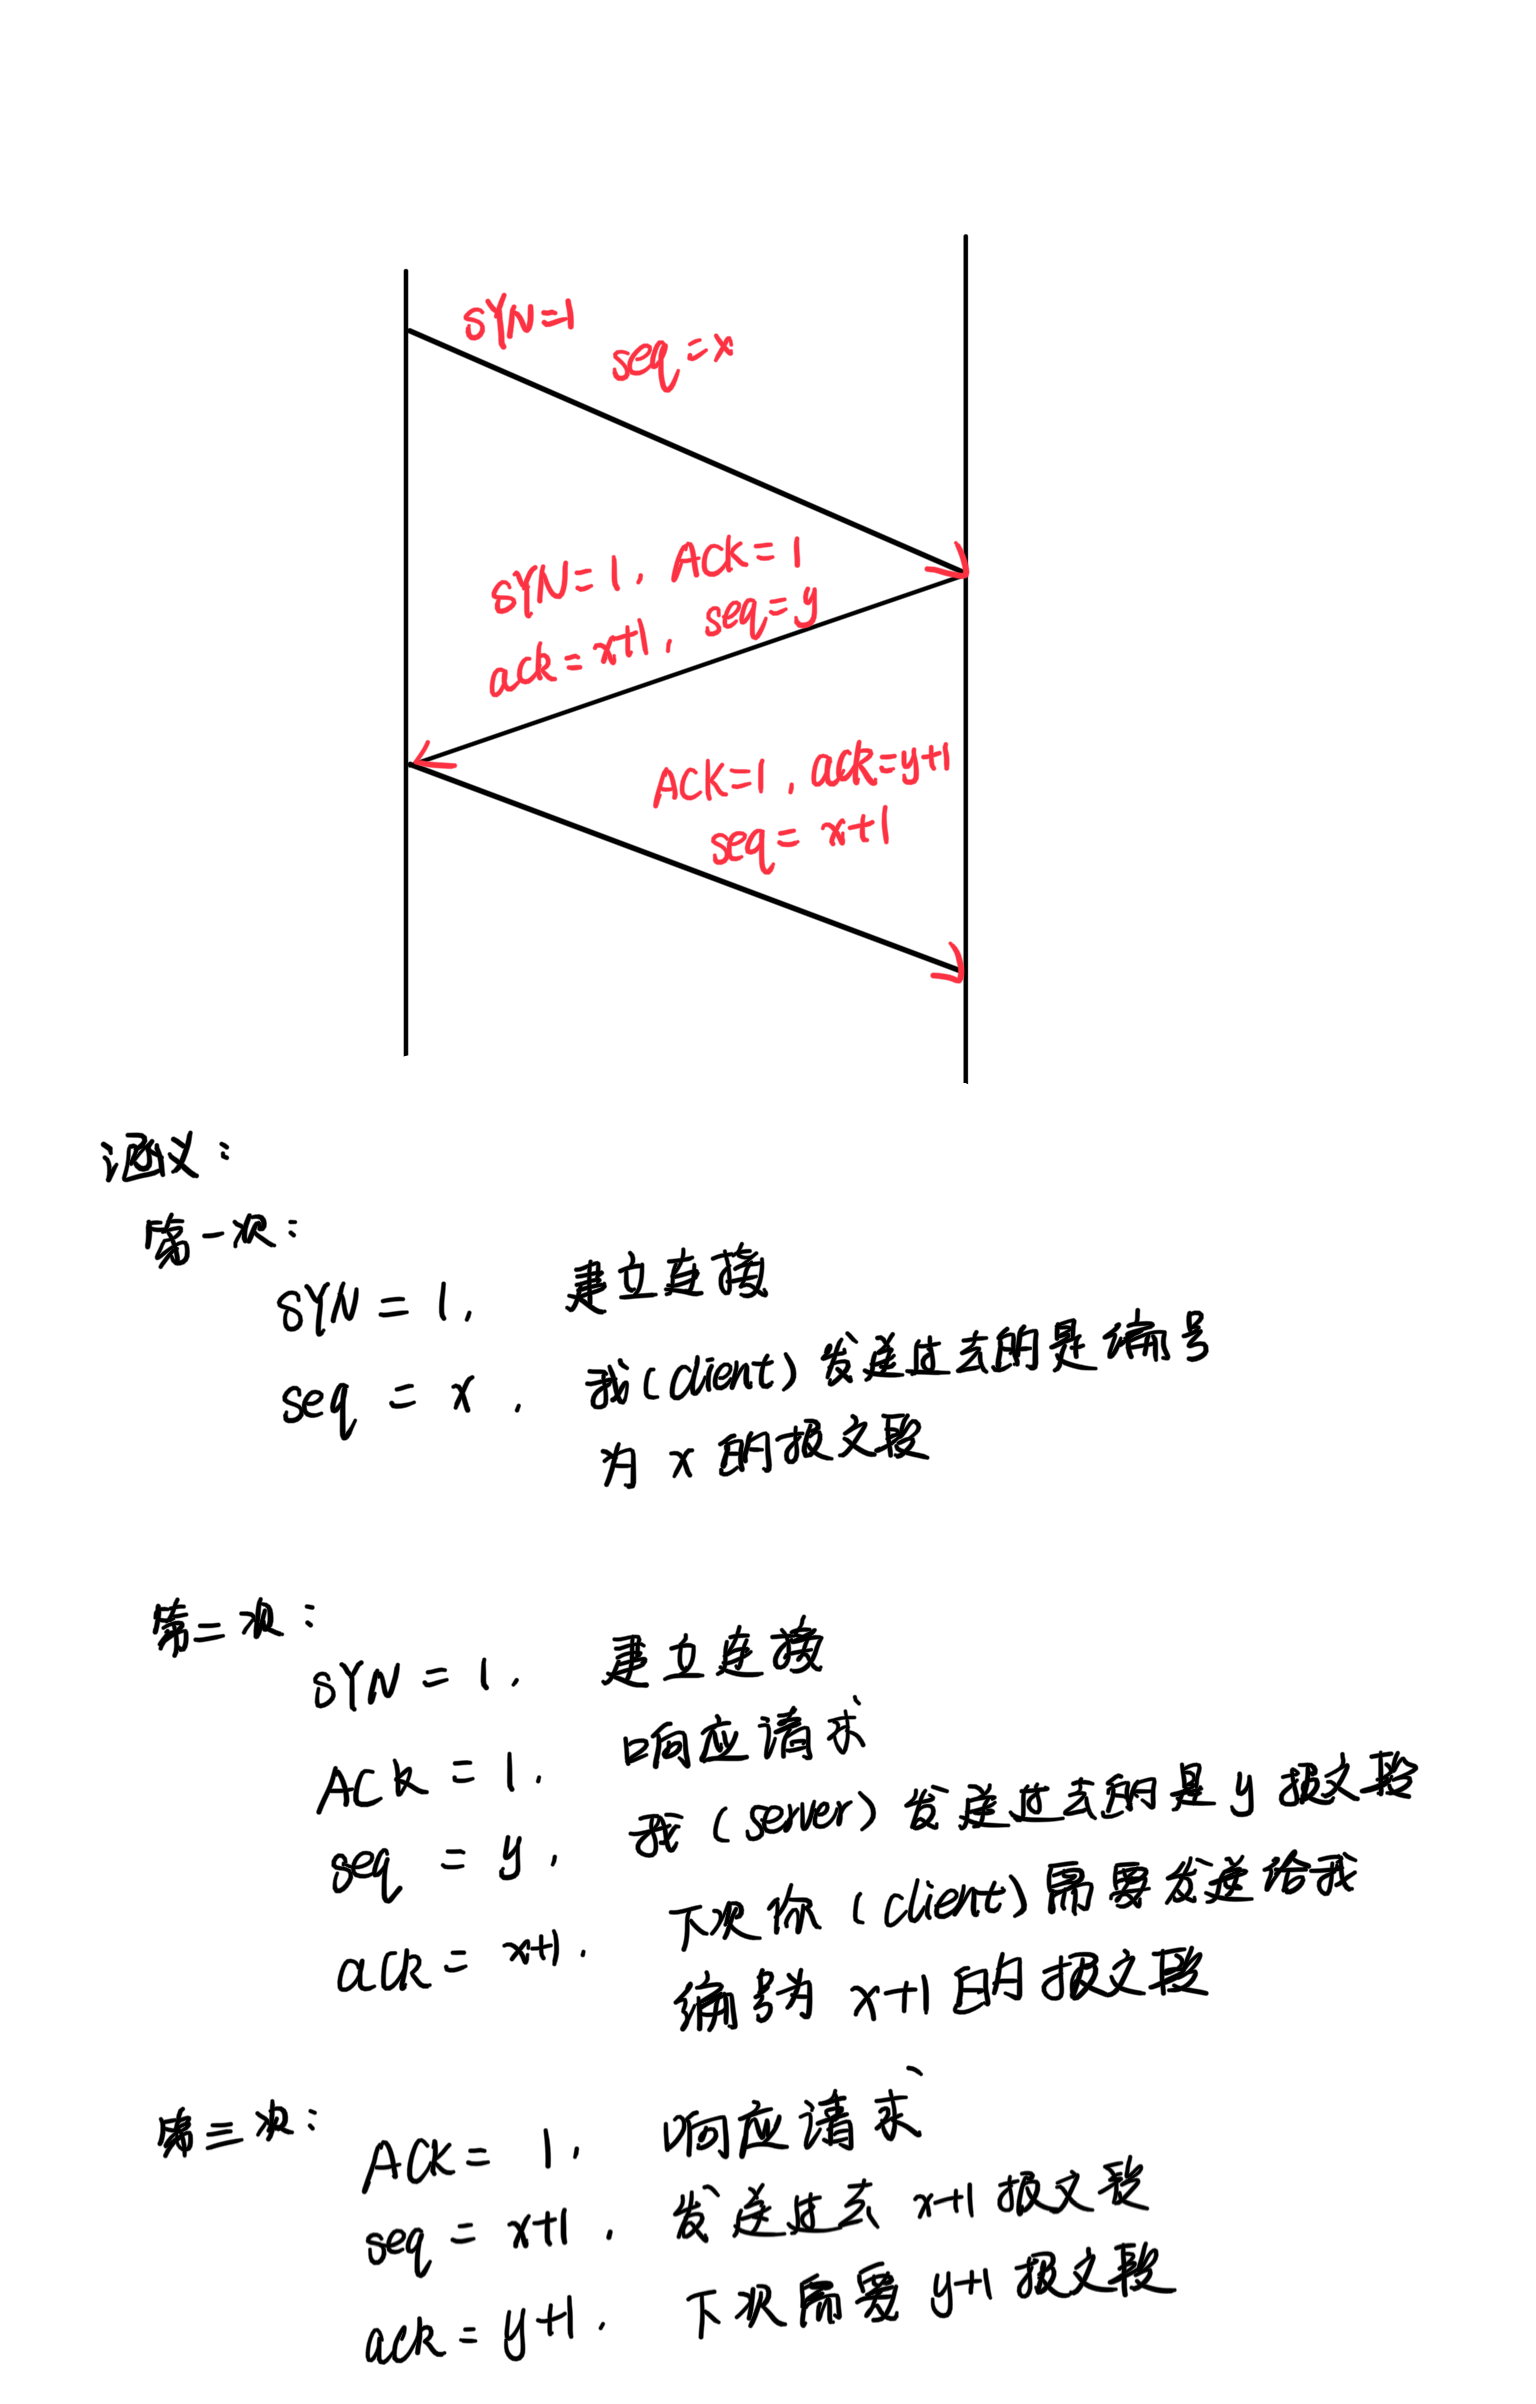 SYN=1
seq=x
SYN=1, ACK=1
ack=x+1, seq=y
ACK=1, ack=y+1
seq=x+1
涵义:
第一次:
SYN=1, 建立连接
seq=x, 我(client)发送过去的是编号
为x的报文段
第二次:
SYN=1, 建立连接
ACK=1, 响应请求
seq=y, 我(server)发送过去的是y报文段
ack=x+1. 下次你(client)需要发送给我
编号为x+1的报文段
第三次:
ACK=1, 响应请求
seq=x+1, 发送过去x+1报文段
ack=y+1, 下次需要y+1报文段